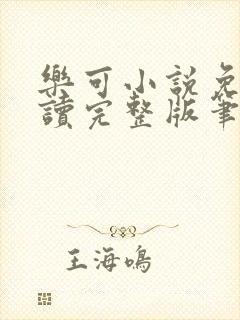 樂可小説免
讀完整版筆
王海鳴